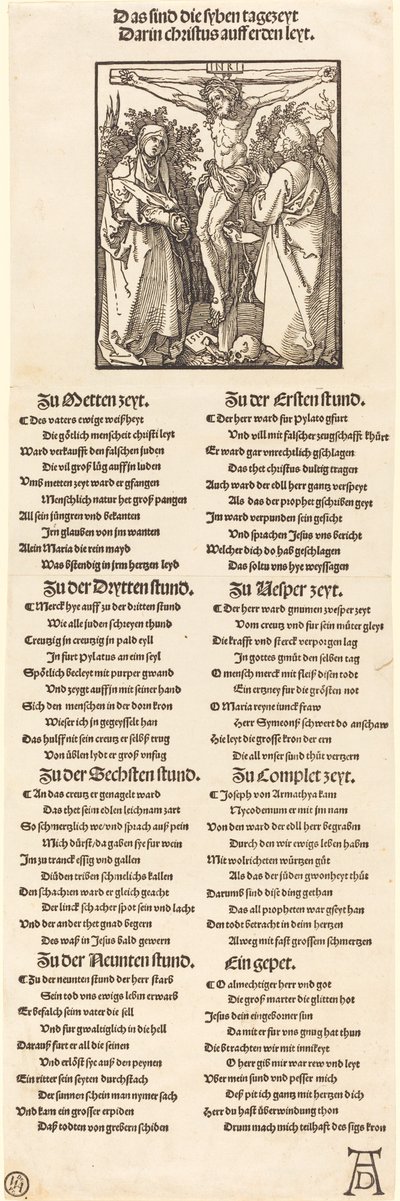 Das sind die syben tagezeyt
Darin christus auff erden leyt.
INRI
1510
Zu Metten zeyt.
Des vaters ewige weißheyt
Die götlich menscheit christi leyt
Ward verkaufft den falschen juden
Die vil groß lüg auff jn luden
Vmb metten zeyt ward er gfangen
Menschlich natur het groß pangen
All sein jüngren vnd bekanten
Jrn glauben von jm wanten
Alein Maria die rein mayd
Was bstendig in jrm hertzen leyd
Zu der Drytten stund.
Merck hye auff zu der dritten stund
Wie alle juden schreyen thund
Creutzig in creutzig in pald eyll
Jn fürt Pylatus an eim seyl
Spötlich becleyt mit purper gwand
Vnd zeygt auff in mit seiner hand
Sich den menschen in der dorn kron
Wie ser ich jn gegeysselt han
Das hulff nit sein creutz er selbs trug
Von üblen lydt er groß vnfug
Zu der Sechsten stund.
An das creutz er genagelt ward
Das thet seim edlen leichnam zart
So schmertzlich we vnd sprach auß pein
Mich dürst da gaben sye für wein
Jm zu tranck essig vnd gallen
Die üden triben schmelichs kallen
Den schachren ward er gleich geacht
Der linck schacher spot sein vnd lacht
Vnd der ander thet gnad begern
Des waß in Jesus bald gewern
Zu der Neunten stund.
Zu der neunten stund der herr starb
Sein tod vns ewigs leben erwarb
Er befalch seim vater die sell
Vnd fur gwaltiglich in die hell
Darauß furt er all die seinen
Vnd erlöst sye auß den peynen
Ein ritter sein seyten durchstach
Der sunnen schein man nymer sach
Vnd kam ein grosser erpiden
Daß todten von grebern schiden
Zu der Ersten stund.
Der herr ward fur Pylato gfurt
Vnd vill mit falscher zeugschafft khürt
Er ward gar vnrechtlich gschlagen
Das thet christus dultig tragen
Auch ward der edll herr gantz verspeyt
Als das der prophet gschriben geyt
Jm ward verpunden sein gesicht
Vnd sprachen Jesus vns bericht
Welcher dich do hab geschlagen
Das soltu vns hye weyssagen
Zu Vesper zeyt.
Der herr ward gnumen zvesper zeyt
Vom creutz vnd fur sein müter gleyt
Die krafft vnd sterck verporgen lag
Jn gottes gmüt den selben tag
O mensch merck mit fleiß disen todt
Ein ertzney fur die grösten not
O Maria reyne iunckfraw
Herr Symeonß schwert do anschaw
Hie leyt die grosse kron der ern
Die all vnser sund thüt vertzern
Zu Complet zeyt.
Joseph von Armathya kam
Nycodemum er mit jm nam
Von den ward der edll herr begrabm
Durch den wir ewigs leben habm
Mit wolricheten würtzen güt
Als das der jüden gwonheyt thüt
Darumb sind dise ding gethan
Das all propheten war gseyt han
Den todt betracht in deim hertzen
Alweg mit fast grossem schmertzen
Ein gepet.
O almechtiger herr vnd got
Die groß marter die glitten hot
Jesus dein eingeborner sun
Da mit er fur vns gnug hat thun
Die btrachten wir mit innikeyt
O herr gib mir war rew vnd leyt
Vber mein sund vnd pesser mich
Deß pit ich gantz mit hertzen dich
Herr du hast überwindung thon
Drum mach mich teilhaft des sigs kron
AD